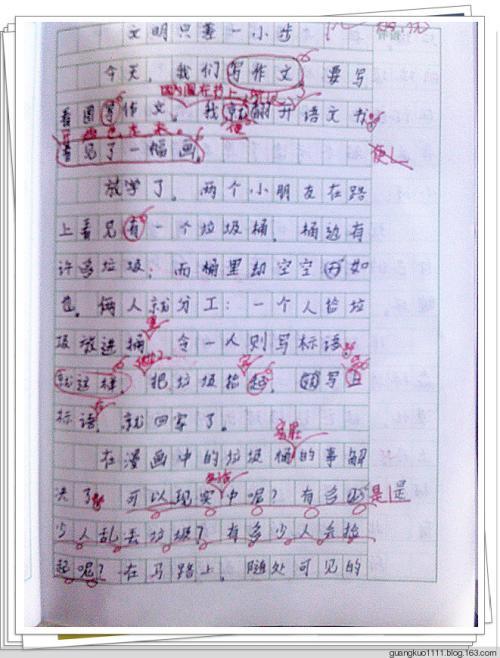 文明只差一小步
今天，我们写作文，要写
看图写作文。我就翻开语文书，
看见了一幅画。
放学了，两个小朋友在路
上看见有一个垃圾桶，桶边有
许多垃圾；而桶里却空空
俩人就分工：一个人捡垃
圾放进桶，令一人则写标语。
就这样，把垃圾捡起，写
标语，就回家了。
在漫画中的垃圾桶的事解
决了，可以现实中呢？有多是
少人乱丢垃圾？有多少人去捡
起呢？在马路上，随处可见的
guangkuo1111.blog.163.com